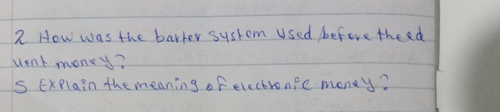 2 How was the barter system used before the ed
vent money?
5 Explain the meaning of electronic money?